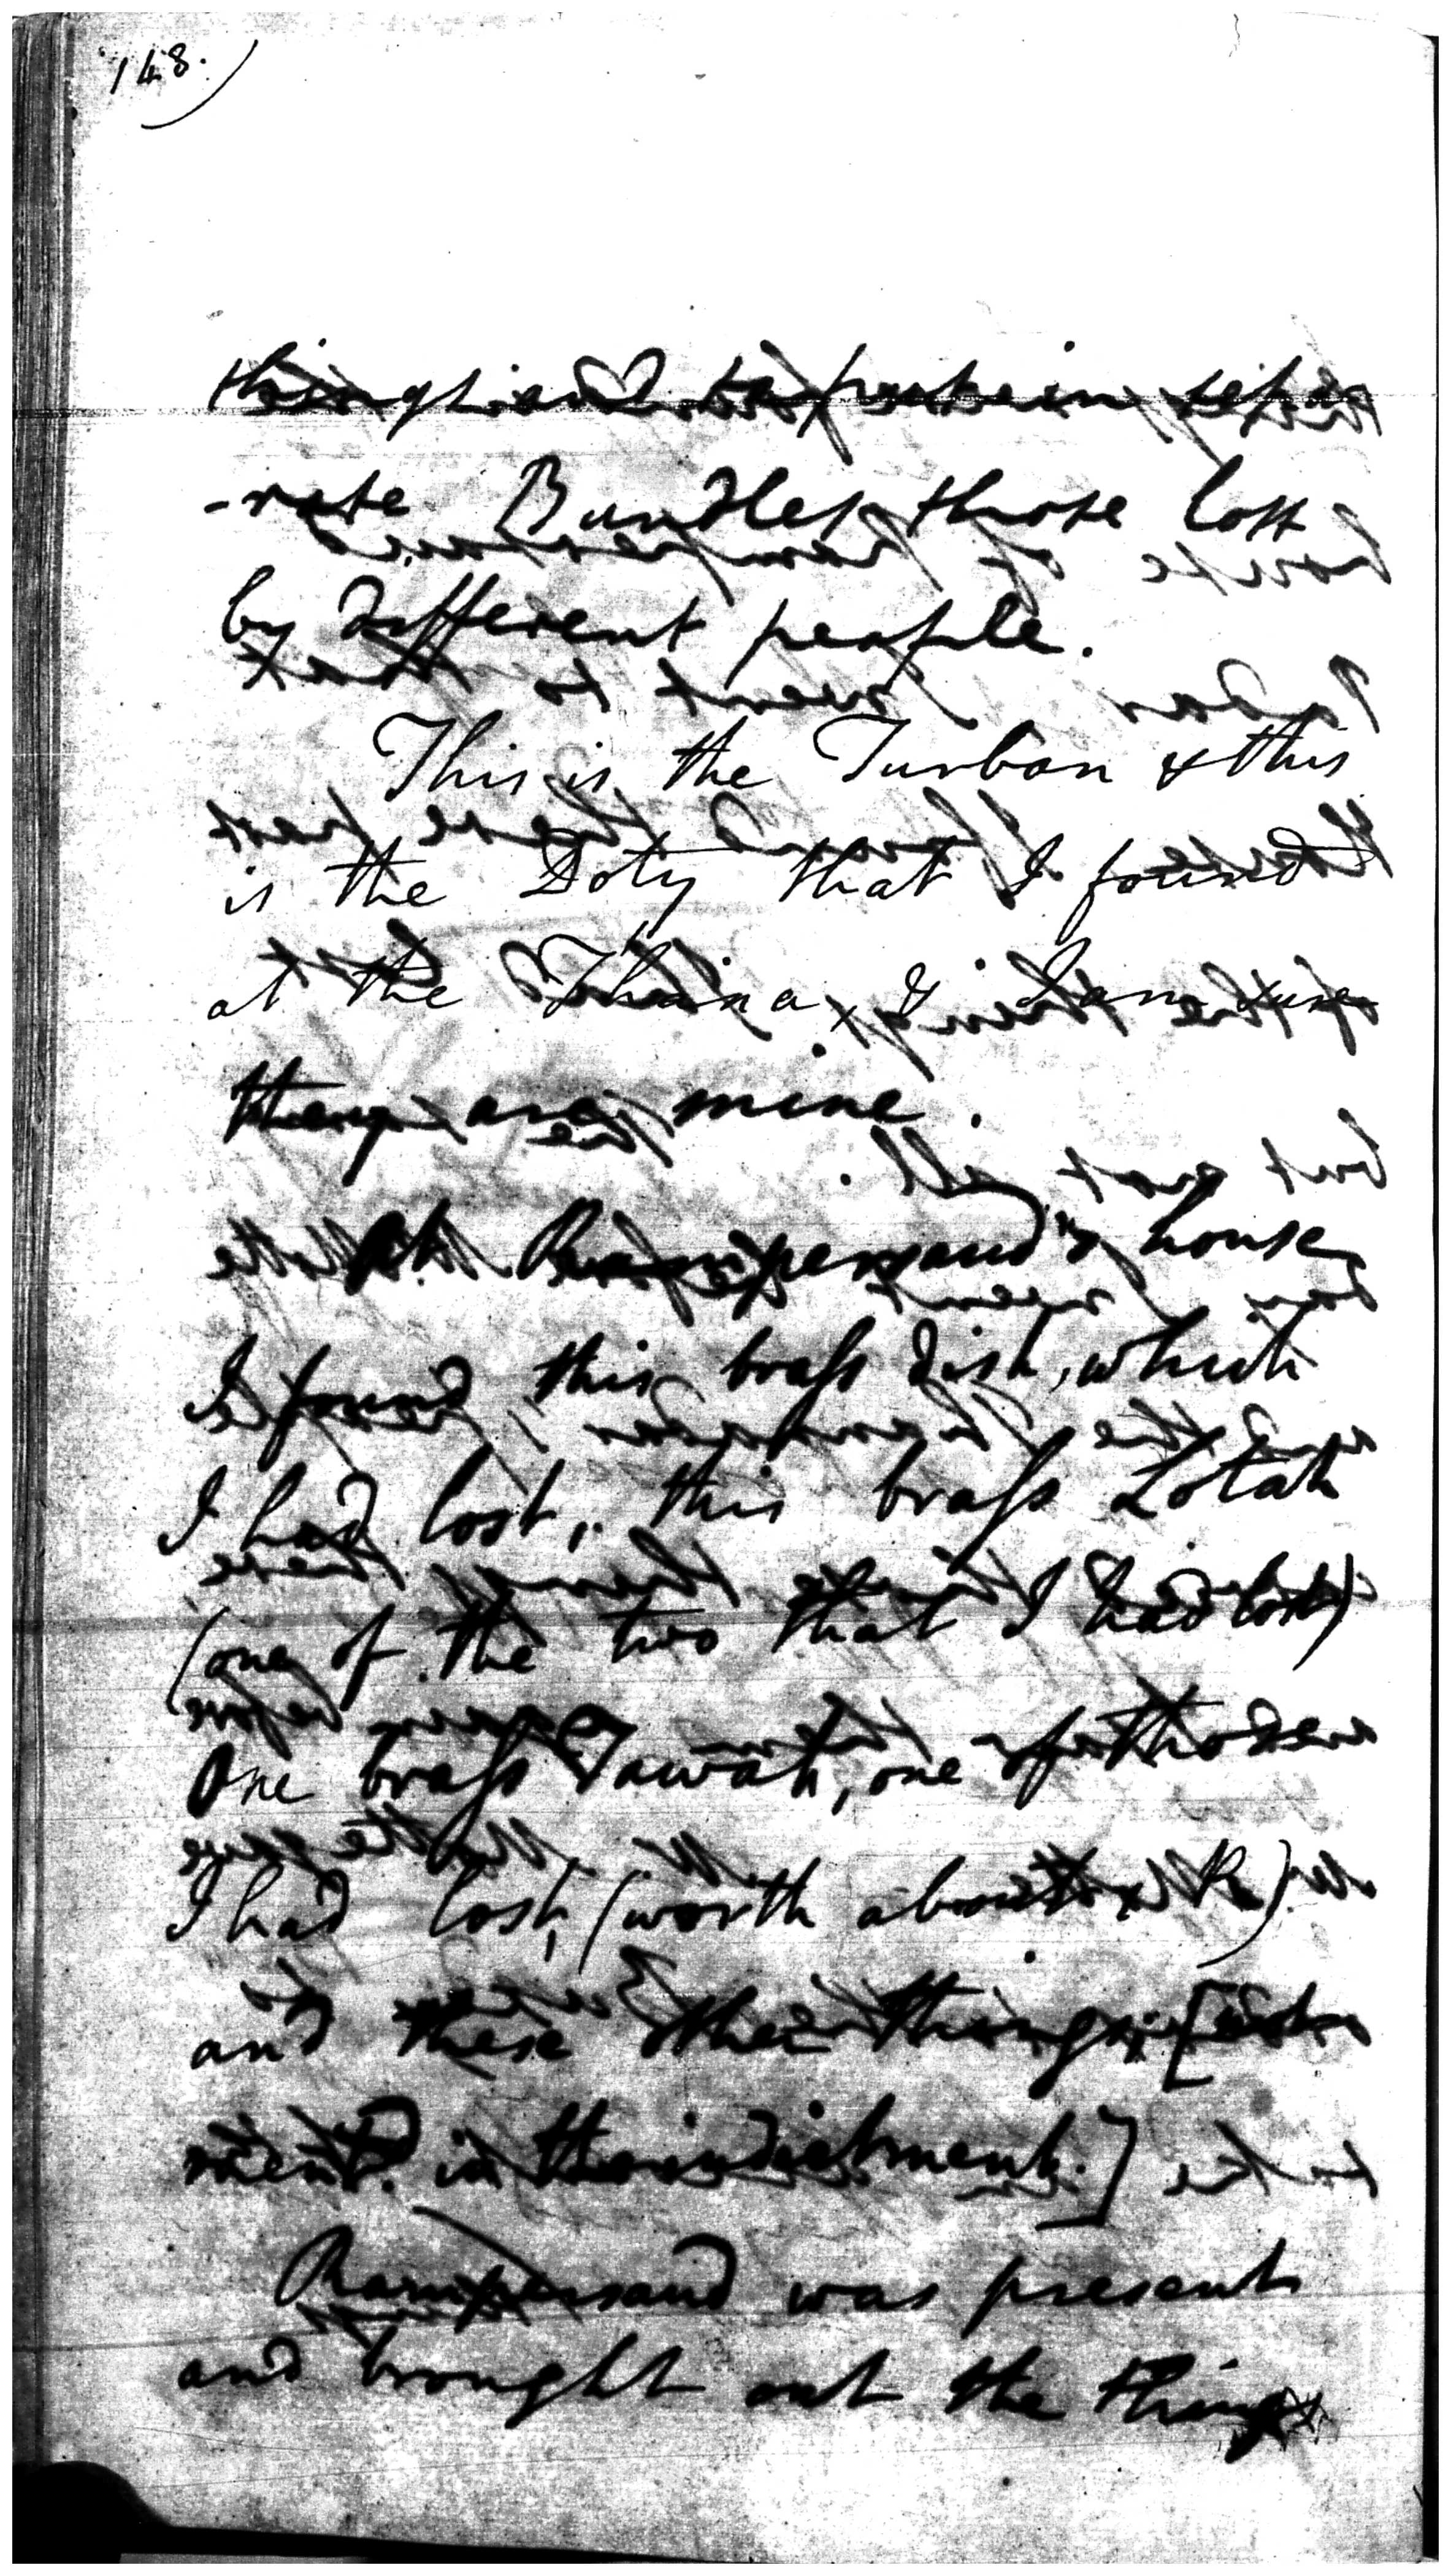 148.)
things and to put in sepa
-rate Bundles those lost
by different people.
This is the Turban & this
is the Doty that I found
at the Thana, & I am sure
they are mine.
At Rampersaud's house
I found this brass dish, which
I had lost, this brass Lotah
(one of the two that I had lost)
One brass Tawah, one of those
I had lost, (worth about R)
and these other things [
ment.d in the indictment.]
Rampersaud was present
and brought out the things